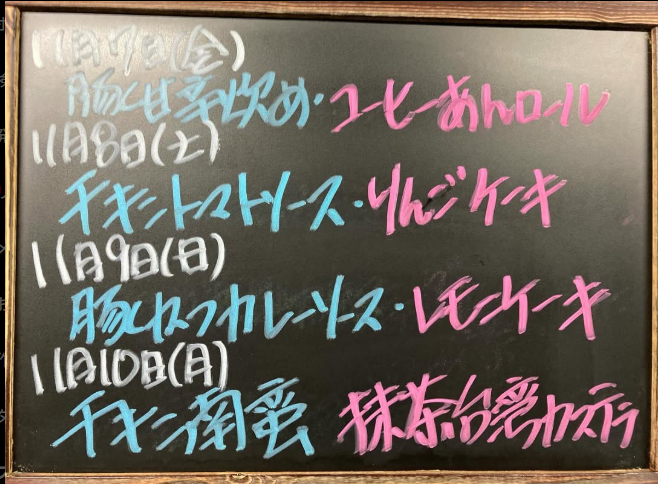 11月7日(金)
豚ヒ甘辛炊め・コーヒーあんロール
11月8日(土)
チキントマトソース・りんごケーキ
11月9日(日)
豚ヒカツカレーソース・レモンケーキ
11月10日(月)
チキン南蛮 抹茶台湾カステラ